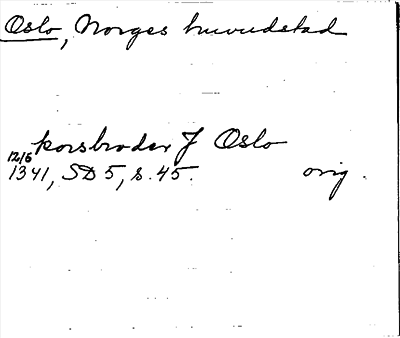 Oslo, Norges huvudstad
korsbroder J Oslo
12/6
1341, SD 5, s. 45. orig.